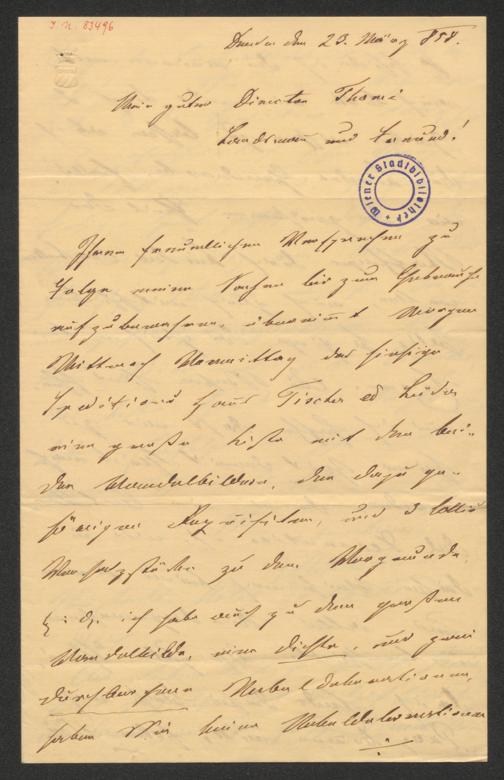 I. N. 83496
Dresden den 23. März 858.
Mein guter Director Thomé
Landsmann und Freund!
Wiener Stadtbibliothek
Ihrem freundlichen Versprechen zu
Folge meine Sachen bis zum Gebrauche
aufzubewahren, übernimmt Morgen
Mittwoch Vormittag das hiesige
Speditions Haus Tischer et
eine große Kiste mit den bei-
den Wandelbildern, den dazu ge-
hörigen Requisiten, und 3
Versatzstücke zu dem Vorgrunde
ich habe auch zu dem großen
Wandelbilde, eine dichte, und zwei
durchbrochene Nebeldekorationen,
haben Sie keine Nebeldekorationen